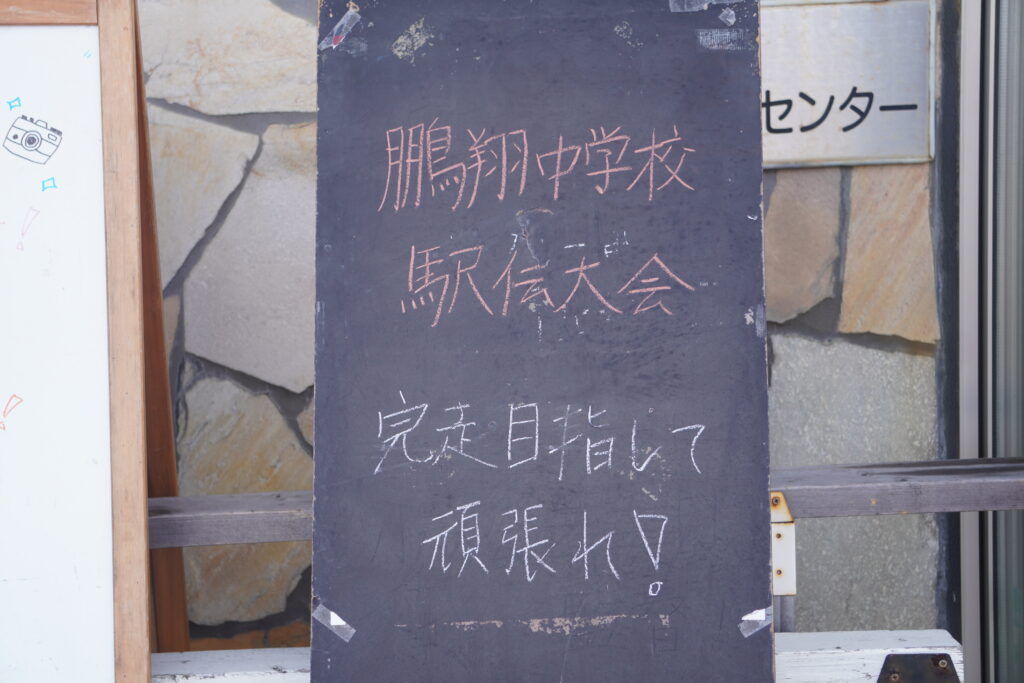 鵬翔中学校
駅伝大会
完走目指して
頑張れ!
センター